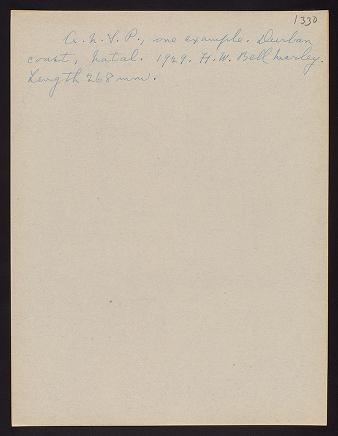 1330
A. N. S. P., one example. Durban
coast, Natal. 1929. H. W. Bell Marley.
Length 268 mm.